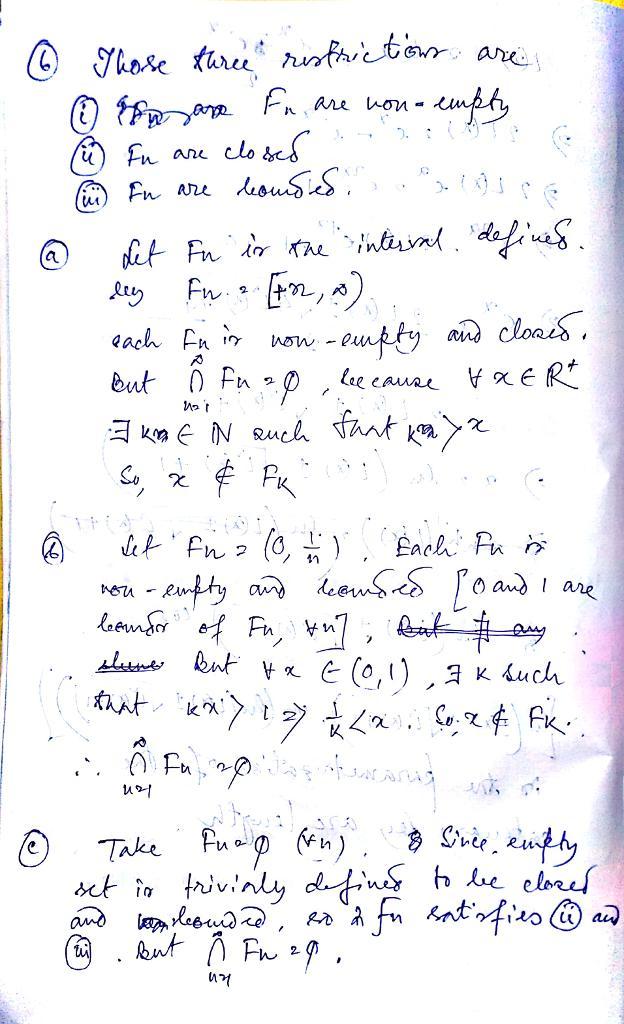 (6) Those three restrictions are
(i) Fn are non-empty
(ii) Fn are closed
(iii) Fn are bounded.
(a) Let Fn is the interval defined.
by Fn = [+n, ∞)
each Fn is non-empty and closed.
But ∞ ∩ n=1 Fn = φ, because ∀ x ∈ R+
∃ k ∈ N such that k > x
So, x ∉ FK
(b) Let Fn = (0, 1/n). Each Fn is
non-empty and bounded [0 and 1 are
bounds of Fn, ∀n], But ∄ any
But ∀x ∈ (0,1), ∃ K such
that kx > 1 => 1/K < x. So, x ∉ FK.
∴ ∞ ∩ n=1 Fn = φ
(c) Take Fn = φ (∀n). Since, empty
set is trivialy defined to be closed
and bounded, so Fn satisfies (ii) and
(iii). But ∞ ∩ n=1 Fn = φ.